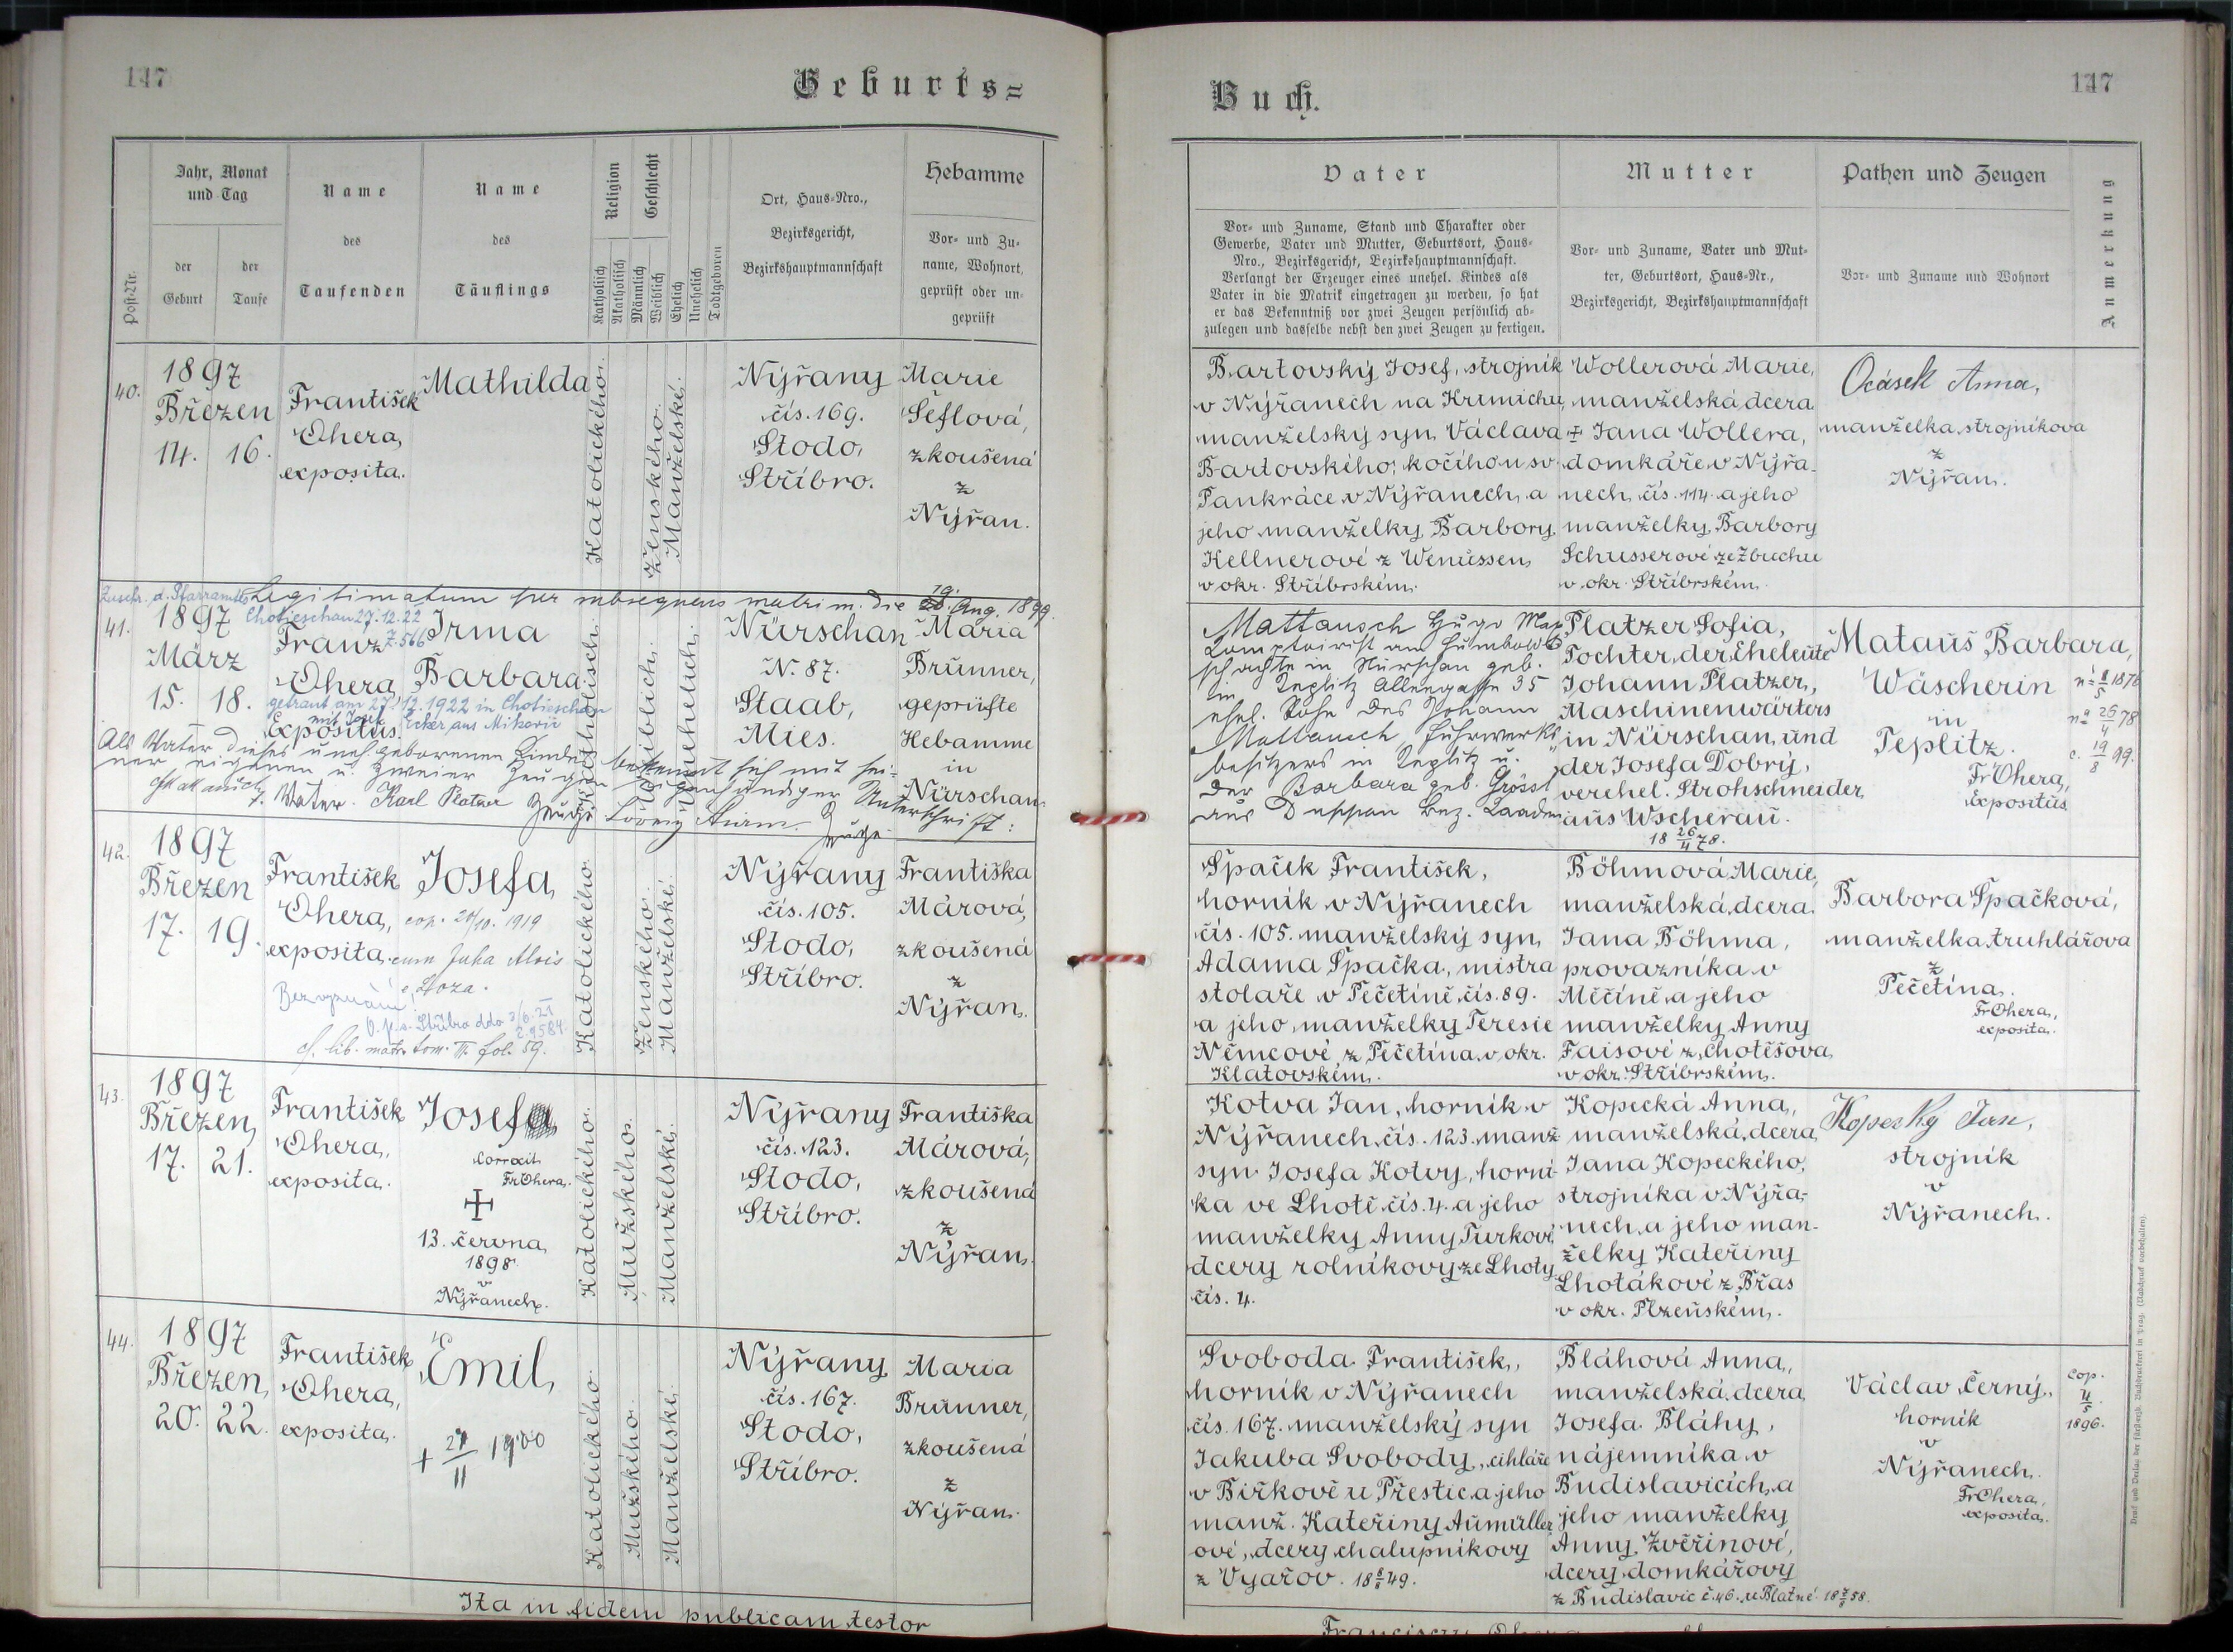 147
Geburts=
Jahr, Monat
und Tag
Name
Name
Religion
Geschlecht
Ort, Haus=Nro.,
Hebamme
des
des
Bezirksgericht,
Vor= und Zu=
Post=Nr.
der
der
Bezirkshauptmannschaft
name, Wohnort,
Geburt
Taufe
Taufenden
Täuflings
Katholisch
Akatholisch
Männlich
Weiblich
Ehelich
Unehelich
Todtgeboren
geprüft oder un=
geprüft
40.
1897
Březen
14. 16.
František
Ohera,
exposita.
Mathilda
Katolického.
Ženského.
Manželské.
Nýřany
čís. 169.
Stodo,
Stříbro.
Marie
Šeflová,
zkoušená
z
Nýřan.
Zuschr. d. Pfarramtes
Chotieschau 27.12.22
Z. 566
Legitimatum per subsequens matrim. die 19. Aug. 1899.
41.
1897
März
15. 18.
Franz
Ohera,
Expositus.
Irma
Barbara
getraut am 27./12. 1922 in Chotieschau
mit Josef Ecker aus
Katholisch.
Weiblich.
Unehelich.
Nürschan
N. 87.
Staab,
Mies.
Maria
Brunner,
geprüfte
Hebamme
in
Nürschan.
Als Vater dieses uneh. geborenen Kindes bekennt sich mit sei=
ner eigenen u. zweier Zeugen eigenhändiger Unterschrift:
Vater. Karl Platzer Zeuge Zeuge
42.
1897
Březen
17. 19.
František
Ohera,
exposita.
Josefa,
cop. 1919
cum Juha Alois
Bez vyznání
cf. lib. matr. tom. III. fol. 59.
Katolického
Ženského.
Manželské.
Nýřany
čís. 105.
Stodo,
Stříbro.
Františka
Márová,
zkoušená
z
Nýřan.
43.
1897
Březen
17. 21.
František
Ohera,
exposita.
Josef
Correxit
Fr Ohera.
13. června
1898
v
Nýřanech.
Katolického.
Mužského.
Manželské.
Nýřany
čís. 123.
Stodo,
Stříbro.
Františka
Márová,
zkoušená
z
Nýřan.
44.
1897
Březen
20. 22.
František
Ohera,
exposita.
Emil
+ 1900
11
Katolického
Mužského.
Manželské.
Nýřany
čís. 167.
Stodo,
Stříbro.
Maria
Brunner,
zkoušená
z
Nýřan.
Ita in fidem publicam testor
Buch.
147
Vater
Mutter
Pathen und Zeugen
Anmerkung
Vor= und Zuname, Stand und Charakter oder
Gewerbe, Vater und Mutter, Geburtsort, Haus=
Nro., Bezirksgericht, Bezirkshauptmannschaft.
Verlangt der Erzeuger eines unehel. Kindes als
Vater in die Matrik eingetragen zu werden, so hat
er das Bekenntniß vor zwei Zeugen persönlich ab=
zulegen und dasselbe nebst den zwei Zeugen zu fertigen.
Vor= und Zuname, Vater und Mut=
ter, Geburtsort, Haus=Nr.,
Bezirksgericht, Bezirkshauptmannschaft
Vor= und Zuname und Wohnort
Bartovský Josef, strojník
v Nýřanech na Krimichu,
manželský syn Václava
Bartovského, kočího u sv.
Pankráce v Nýřanech, a
jeho manželky Barbory
Kellnerové z Wenussen
v okr. Stříbrském.
Wollerová Marie,
manželská dcera
+ Jana Wollera,
domkáře v Nýřa-
nech čís. 114. a jeho
manželky Barbory
Schusserové ze Zbuchu
v okr. Stříbrském.
Ocásek Anna,
manželka strojníkova
z
Nýřan.
Mattausch Hugo Max
Comptoirist am Humboldt
schachte in Nürschan geb.
in Teplitz Alleegasse 35
ehel. Sohn des Johann
Mattausch, Fuhrwerks
besitzers in Teplitz u.
der Barbara geb. Grössl
aus Duppau Bez. Kaaden
Platzer Sofia,
Tochter der Eheleute
Johann Platzer,
Maschinenwärters
in Nürschan, und
der Josefa Dobrý,
verehel. Strohschneider,
aus Wscherau.
18 26/4 78.
Mataus Barbara,
Wäscherin
in
Teplitz.
Fr Ohera,
Expositus
1876
26/4 78
c. 19/8 99.
Špaček František,
horník v Nýřanech
čís. 105. manželský syn
Adama Špačka, mistra
stolaře v Pečetíně, čís. 89.
a jeho manželky Teresie
Němcové z Pečetína v okr.
Klatovském.
Böhmová Marie,
manželská dcera
Jana Böhma,
provazníka v
Měčíně a jeho
manželky Anny
Faisové z Chotěšova
v okr. Stříbrském.
Barbora Špačková,
manželka truhlářova
z
Pečetína.
Fr Ohera,
exposita.
Kotva Jan, horník v
Nýřanech, čís. 123. manž
syn Josefa Kotvy, horní-
ka ve Lhotě čís. 4. a jeho
manželky Anny Turkové
dcery rolníkovy ze Lhoty
čís. 4.
Kopecká Anna,
manželská dcera
Jana Kopeckého,
strojníka v Nýřa-
nech a jeho man-
želky Kateřiny
Lhotákové z Břas
v okr. Plzeňském.
Kopecký Jan,
strojník
v
Nýřanech.
Svoboda František,
horník v Nýřanech
čís. 167. manželský syn
Jakuba Svobody, cihláře
v Biřkově u Přestic a jeho
manž. Kateřiny Aumüller
ové, dcery chalupníkovy
z Vyařov. 18 8/8 49.
Bláhová Anna,
manželská dcera
Josefa Bláhy,
nájemníka v
Budislavicích, a
jeho manželky
Anny Zvěřinové,
dcery domkářovy
z Budislavic č. 46. u Blatné 18 7/8 58.
Václav Černý,
horník
v
Nýřanech.
Fr Ohera,
exposita.
cop.
4/5
1896.